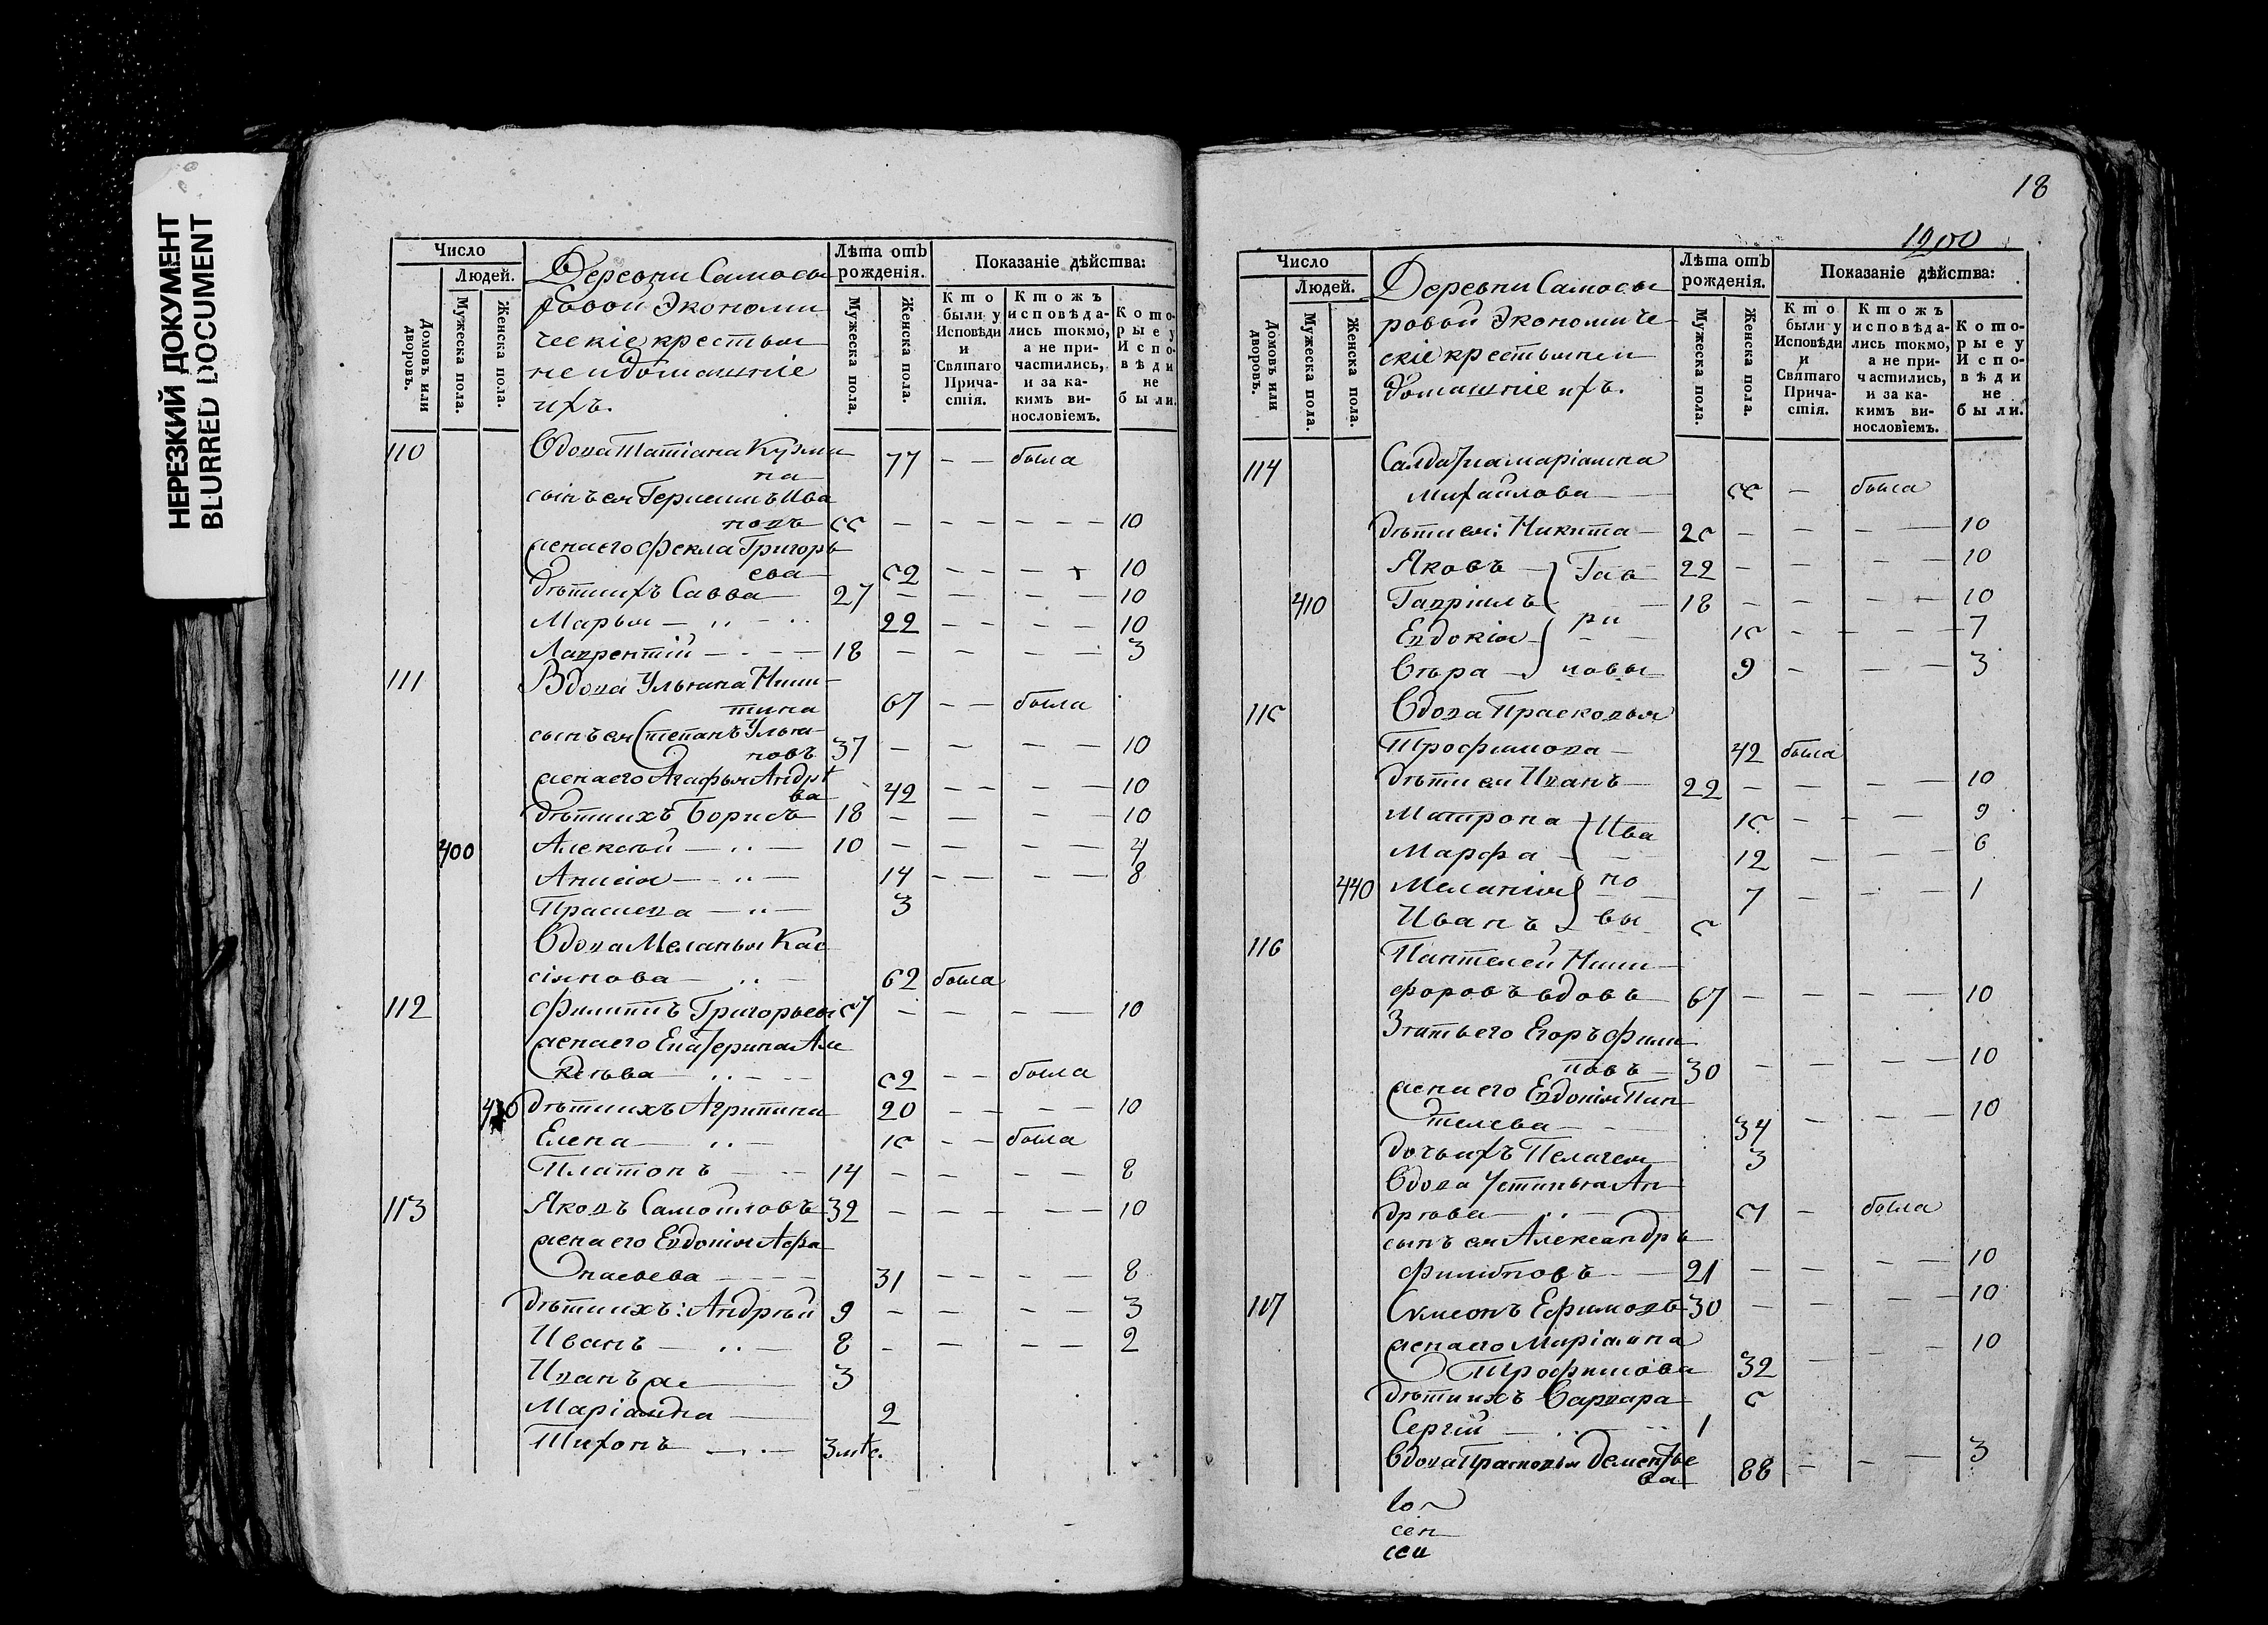 НЕРЕЗКИЙ ДОКУМЕНТ
BLURRED DOCUMENT
Число
Людей.
Домовъ или дворовъ.
Мужеска пола.
Женска пола.
Деревни Самосы
ровой Экономи
ческіе крестья
не и домашніе
ихъ.
Лѣта отъ рожденія.
Мужеска пола.
Женска пола.
Показаніе дѣйства:
Кто были у Исповѣди и Святаго Причастія.
Ктожъ исповѣдались токмо, а не причастились, и за какимъ винословіемъ.
Которые у Исповѣди не были.
110 Вдова Татіана Кузми
на 77 — — была
сынъ ея Герасимъ Ива
новъ 55 — — — — — — 10
жена его Фекла Григорь
ева 52 — — — — 10
дѣти ихъ Савва 27 — — — — 10
Марья 22 — — — — 10
Лаврентій 18 — — — — 3
111 Вдова Ульяна Ники
тина 67 — — была
сынъ ея Степанъ Улья
новъ 37 — — — — 10
жена его Агафья Андрѣ
ва 42 — — — — 10
дѣти ихъ Борисъ 18 — — — — 10
400 Алексѣй 10 — — — — 4
Анисія 14 — — — — 8
Прасцева 3
Вдова Меланья Кас
сіянова 62 была
112 Филиппъ Григорьевъ 57 — — — — 10
жена его Екатерина Але
ксѣева 52 — — была
430 дѣти ихъ Агрипина 20 — — — — 10
Елена 15 — — была
Платонъ 14 — — — — 8
113 Яковъ Самойловъ 32 — — — — — 10
жена его Евдокія Афа
насьева 31 — — — — 8
дѣти ихъ: Андрѣй 9 — — — — 3
Иванъ 8 — — — — 2
Иванъ же 3
Маріамна 2
Тихонъ 3 мѣс.
18
1200
Число
Людей.
Домовъ или дворовъ.
Мужеска пола.
Женска пола.
Деревни Самосы
ровой Экономиче
скіе крестьяне и
домашніе ихъ.
Лѣта отъ рожденія.
Мужеска пола.
Женска пола.
Показаніе дѣйства:
Кто были у Исповѣди и Святаго Причастія.
Ктожъ исповѣдались токмо, а не причастились, и за какимъ винословіемъ.
Которые у Исповѣди не были.
114 Салдатка Маріамна
Михайлова 55 — была
дѣти ея: Никита 25 — — — — 10
Яковъ Гав 22 — — — — 10
410 Гавріилъ 18 — — — — 10
Евдокія ри 15 — — — — 7
Вѣра ловы 9 — — — 3
115 Вдова Прасковья
Трофимова 42 была
дѣти ея Иванъ 22 — — — — 10
Матрона Ива 15 — — — 9
Марфа 12 — — — 6
440 Меланія но 7 — — — 1
Иванъ вы 5
116 Пантелей Ники
форовъ вдовъ 67 — — — — 10
Зять его Егоръ Фили
повъ 30 — — — — 10
жена его Евдокія Пан
телева 34 — — — 10
дочь ихъ Пелагея 3
Вдова Устинья Ан
дрѣова 57 — была
сынъ ея Александръ
Филиповъ 21 — — — — 10
117 Симеонъ Ефимовъ 30 — — — — 10
жена его Маріамна
Трофимова 32 — — — 10
дѣти ихъ Варвара 5
Сергій 1
Вдова Прасковья Дементье
ва 88 — — — 3